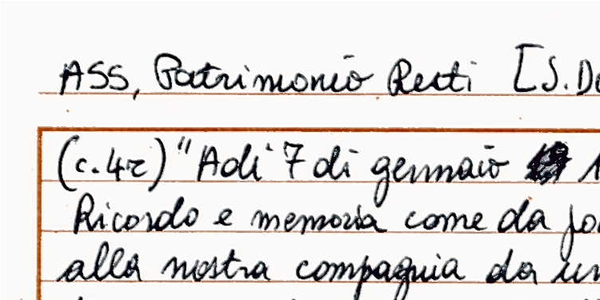 ASS, Patrimonio Resti [S. De
(c. 4r) "Adi 7 di gennaio 1
Ricordo e memoria come da
alla nostra compagnia da un